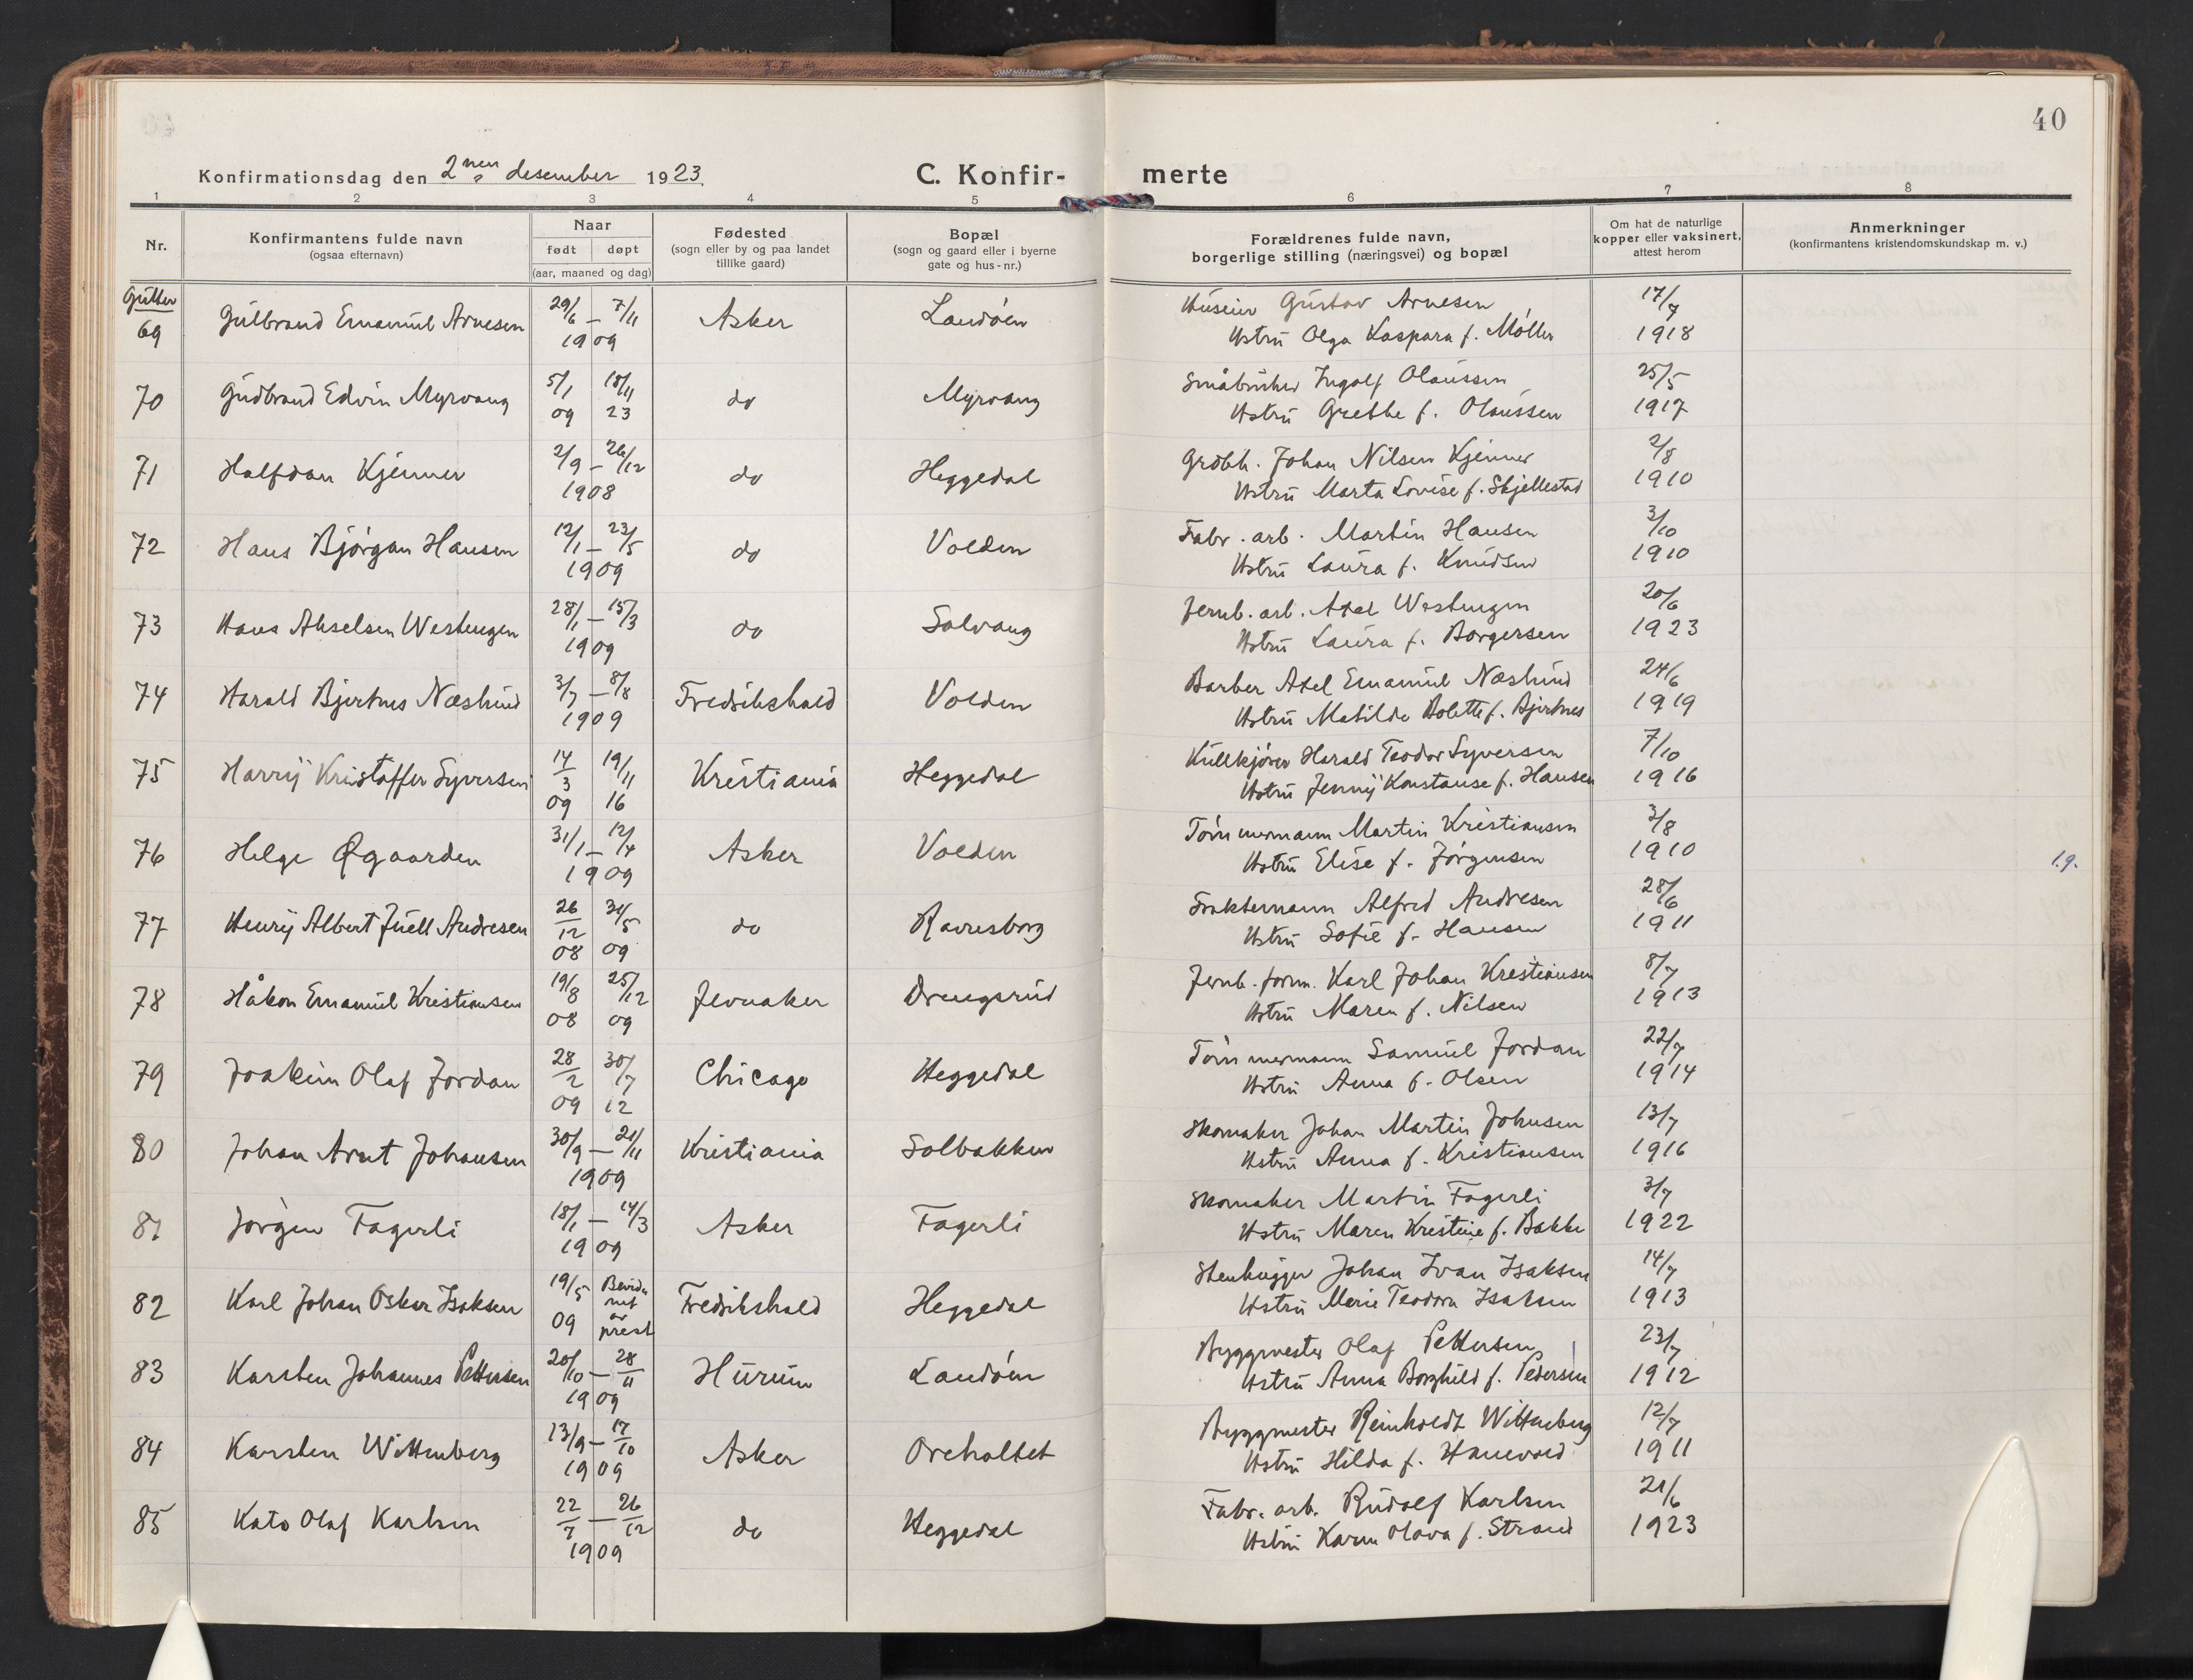 40
Konfirmationsdag den 2nen desember 1923.
C. Konfir-merte
1 2 3 4 5 6 7 8
Nr.
Konfirmantens fulde navn
(ogsaa efternavn)
Naar
født døpt
(aar, maaned og dag)
Fødested
(sogn eller by og paa landet
tillike gaard)
Bopæl
(sogn og gaard eller i byerne
gate og hus-nr.)
Forældrenes fulde navn,
borgerlige stilling (næringsvei) og bopæl
Om hat de naturlige
kopper eller vaksinert,
attest herom
Anmerkninger
(konfirmantens kristendomskundskap m. v.)
Gutter
69 Gulbrand Emanuel Arnesen 29/6 – 7/11 1909 Asker Landøen Huseier Gustav Arnesen 17/7
Hstru Olga Kaspara f. Møller 1918
70 Gudbrand Edvin Myrvang 5/1 09 18/11 23 do Myrvang Småbruker Ingolf Olaussen 25/5
Hstru Grethe f. Olaussen 1917
71 Halfdan Kjenner 2/9 – 26/12 1908 do Heggedal Grdbh. Johan Nilsen Kjenner 2/8
Hstru Marta Lovise f. Skjellestad 1910
72 Hans Bjørgan Hansen 12/1 – 23/5 1909 do Volden Fabr. arb. Martin Hansen 3/10
Hstru Laura f. Knudsen 1910
73 Hans Akselsen Westengen 28/1 – 15/3 1909 do Solvang Jernb. arb. Axel Westengen 20/6
Hstru Laura f. Borgersen 1923
74 Harald Bjerknes Næslund 3/7 – 8/8 1909 Fredrikshald Volden Barber Axel Emanuel Næslund 24/6
Hstru Matilde Bolette f. Bjerknes 1919
75 Harry Kristoffer Syversen 14/3 09 19/11 16 Kristiania Heggedal Kullkjører Harald Teodor Syversen 7/10
Hstru Jenny Konstanse f. Hansen 1916
76 Helge Øgaarden 31/1 – 12/4 1909 Asker Volden Tømmermann Martin Kristiansen 3/8
Hstru Elise f. Jørgensen 1910 1.9.
77 Henry Albert Juell Andresen 26/12 08 31/5 09 do Ravnsborg Fraktemann Alfred Andresen 28/6
Hstru Sofie f. Hansen 1911
78 Håkon Emanuel Kristiansen 19/8 08 25/12 09 Jevnaker Drengsrud Jernb. form. Karl Johan Kristiansen 8/7
Hstru Maren f. Nilsen 1913
79 Joakim Olaf Jordan 28/2 09 30/7 12 Chicago Heggedal Tømmermann Samuel Jordan 22/7
Hstru Anna f. Olsen 1914
80 Johan Arnt Johansen 30/9 – 21/11 1909 Kristiania Solbakken Skomaker Johan Martin Johnsen 13/7
Hstru Anna f. Kristiansen 1916
81 Jørgen Fagerli 18/1 – 14/3 1909 Asker Fagerli Skomaker Martin Fagerli 3/7
Hstru Maren Kristine f. Bakke 1922
82 Karl Johan Oskar Isaksen 19/5 09 Bevidnet av prest Fredrikshald Heggedal Stenhugger Johan Ivan Isaksen 14/7
Hstru Marie Teodora Isaksen 1913
83 Karsten Johannes Pettersen 20/10 – 28/11 1909 Hurum Landøen Byggmester Olaf Pettersen 23/7
Hstru Anna Borghild f. Pedersen 1912
84 Karsten Wittenberg 13/9 – 17/10 1909 Asker Oreholtet Byggmester Reinholdt Wittenberg 12/7
Hstru Hilda f. Hanevold 1911
85 Kato Olaf Karlsen 22/7 – 26/12 1909 do Heggedal Fabr. arb. Rudolf Karlsen 21/6
Hstru Karen Olava f. Strand 1923